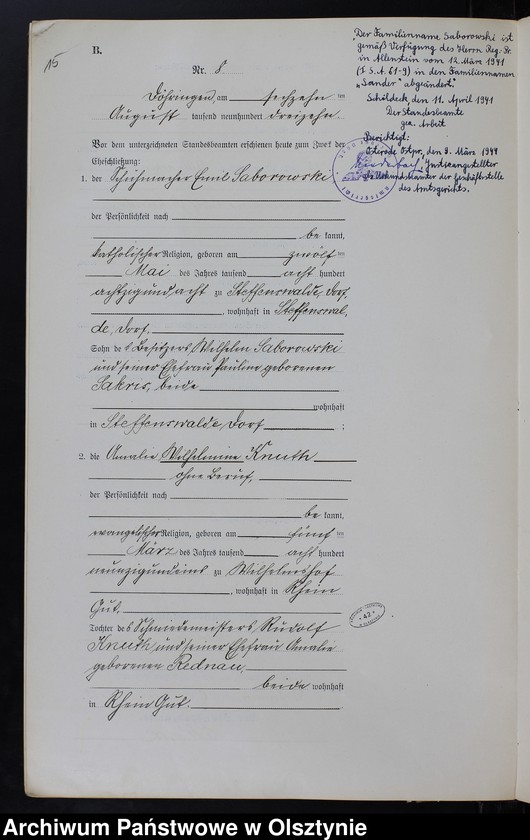 15
B.
Nr. 8
Döhringen am sechzehn ten
August tausend neunhundert dreizehn.
Vor dem unterzeichneten Standesbeamten erschienen heute zum Zweck der
Eheschließung:
1. der Schuhmacher Emil Saborowski
der Persönlichkeit nach
be kannt,
katholischer Religion, geboren am zwölf ten
Mai des Jahres tausend acht hundert
achtzigundacht zu Steffenswalde, Dorf,
, wohnhaft in Steffenswal,
de, Dorf,
Sohn des Besitzers Wilhelm Saborowski
und seiner Ehefrau Pauline geborenen
Sakris, beide
wohnhaft
in Steffenswalde, Dorf ;
2. die Amalie Wilhelmine Knuth
ohne Beruf,
der Persönlichkeit nach
be kannt,
evangelischer Religion, geboren am fünf ten
März des Jahres tausend acht hundert
neunzigundeins zu Wilhelmshof
, wohnhaft in Rhein
Gut.
Tochter des Schmiedemeisters Rudolf
Knuth und seiner Ehefrau Amalie
geborenen Rednau,
beide wohnhaft
in Rhein Gut.
"Der Familienname Saborowski ist
gemäß Verfügung des Herrn Reg.-Pr.
in Allenstein vom 12. März 1941
(I S.A. 61-9) in den Familiennamen
"Sander" abgeändert."
Schildeck, den 11. April 1941
Der Standesbeamte
gez. Arbeit
Berichtigt:
Osterode Ostpr., den 9. März 1944
Justizangestellter
als Urkundsbeamter der Geschäftsstelle
des Amtsgerichts.
42
Archiwum Państwowe w Olsztynie